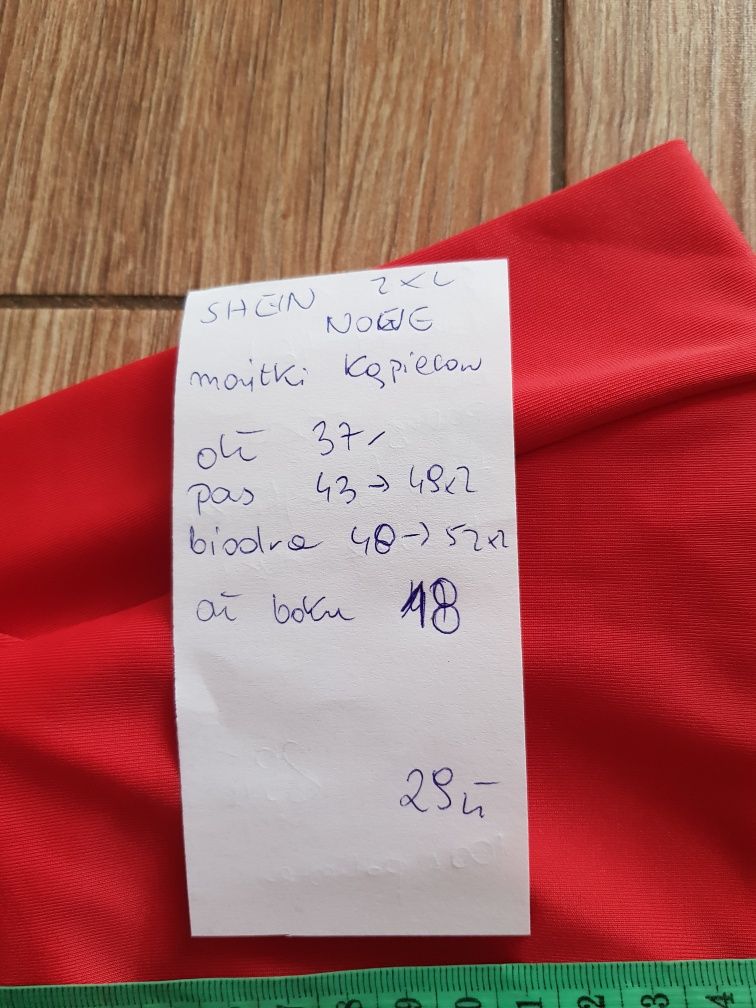 SHEIN 2XL
NOWE
majtki kąpielow
dł 37
pas 43 → 49x2
biodra 48 → 52x2
dł boku 18
29 zł
8 9 10 11 12 13 14